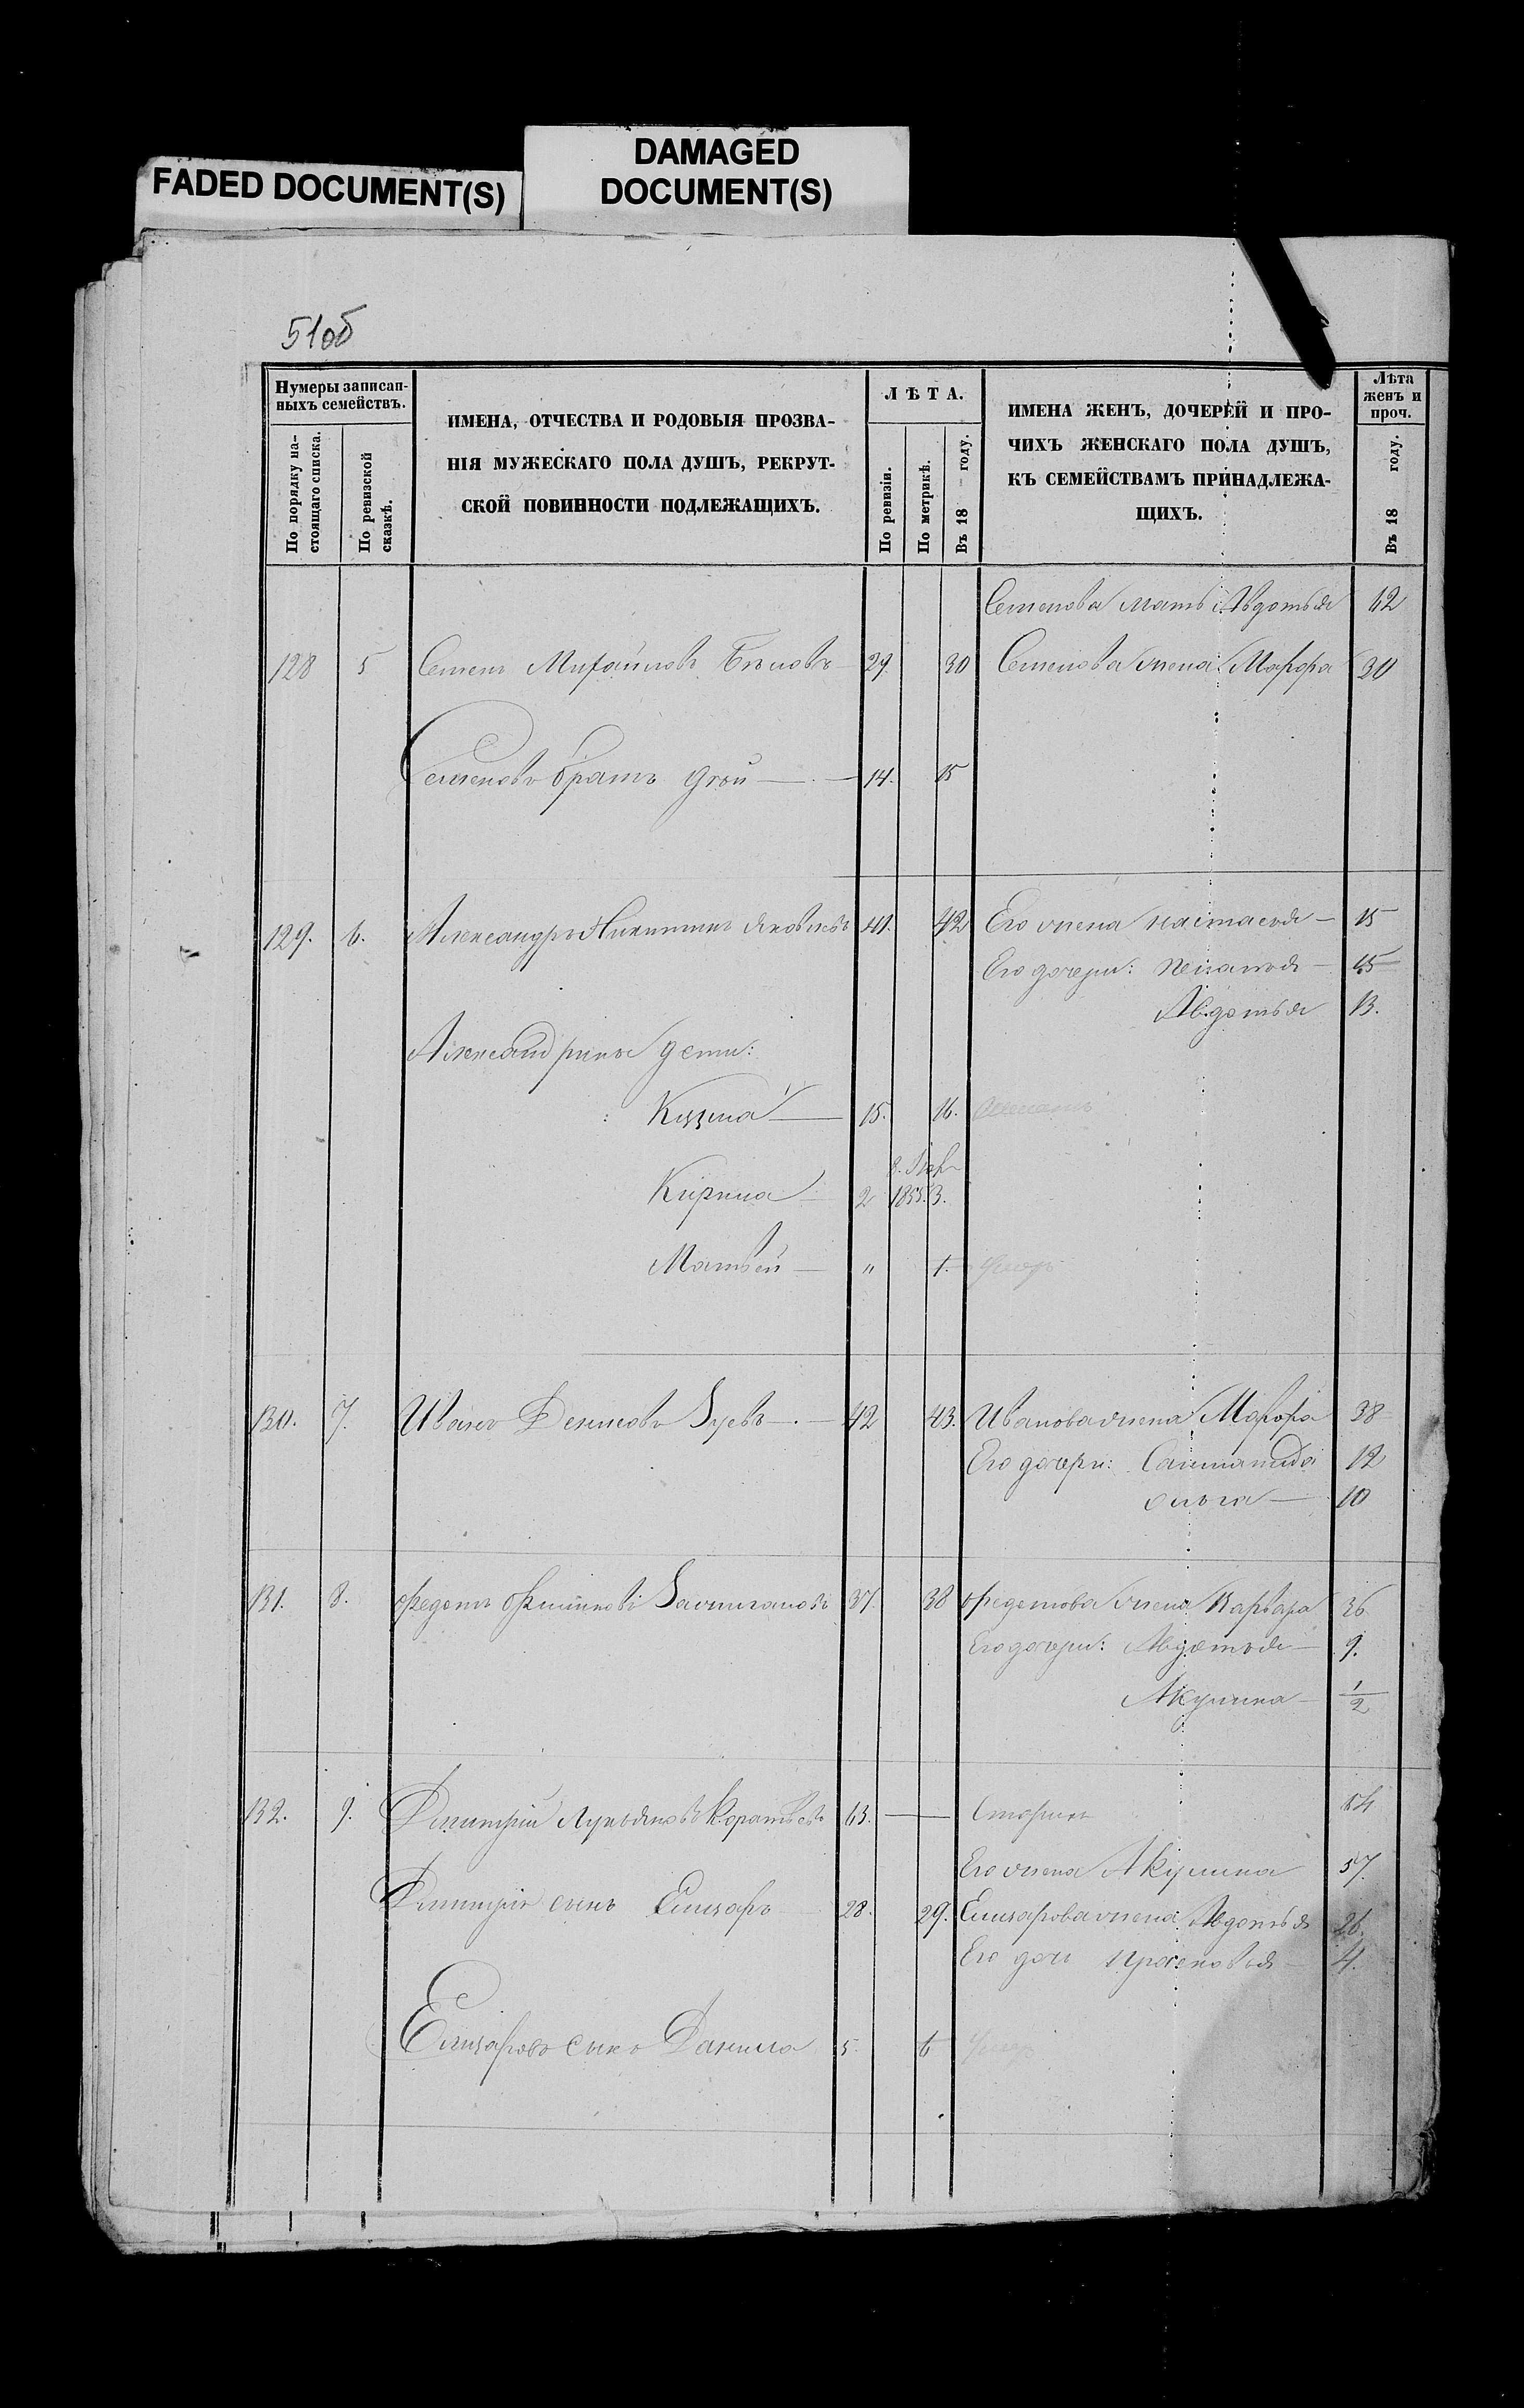 FADED DOCUMENT(S)
DAMAGED
DOCUMENT(S)
51об
Нумеры записан-
ныхъ семействъ.
По порядку на-
стоящаго списка.
По ревизской
сказкѣ.
ИМЕНА, ОТЧЕСТВА И РОДОВЫЯ ПРОЗВА-
НІЯ МУЖЕСКАГО ПОЛА ДУШЪ, РЕКРУТ-
СКОЙ ПОВИННОСТИ ПОДЛЕЖАЩИХЪ.
ЛѢТА.
По ревизіи.
По метрикѣ.
Въ 18 году.
ИМЕНА ЖЕНЪ, ДОЧЕРЕЙ И ПРО-
ЧИХЪ ЖЕНСКАГО ПОЛА ДУШЪ,
КЪ СЕМЕЙСТВАМЪ ПРИНАДЛЕЖА-
ЩИХЪ.
Лѣта
женъ и
проч.
Въ 18 году.
Семенова мать Авдотья 62
128 5 Семенъ Михайловъ Бѣловъ 29. 30 Семенова жена Марфа 30
Семеновъ братъ 14. 15
129. 6. Александръ Никитинъ Яковлевъ 41. 42 Его жена Настасья
Его дочери: 15
Авдотья 13.
Александровы дети:
Кузма 15. 16.
Кирила 2 1855. 3.
Матвей " 1.
130. 7. Иванъ Денисовъ Зуевъ 42 43. Иванова жена Марфа 38
Его дочери: 12
Ольга 10
131. 8. Федотъ 37. 38 Федотова жена Варвара 36
Его дочери: Авдотья 9.
Акулина 1/2
132. 9. Дмитрий Лукьяновъ 63. Старикъ
Его жена Акулина 57.
Дмитрия сынъ Елизаръ 28. 29. Елизарова жена Авдотья 26.
Его дочь Просковья 4.
Елизаровъ сынъ Данила 5. 6